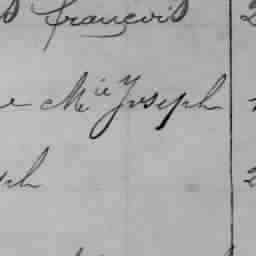 s françois 2
e M^ie Joseph
ph 2